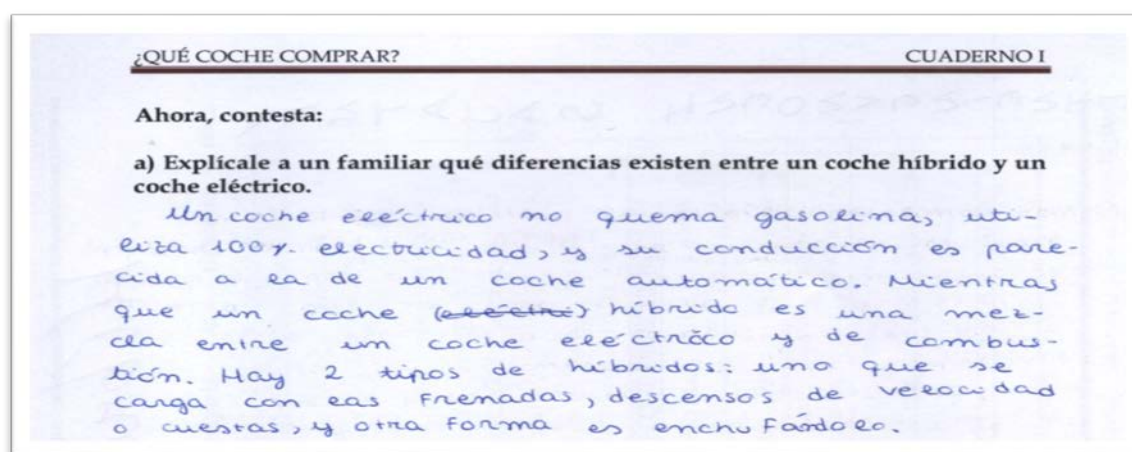 ¿QUÉ COCHE COMPRAR? CUADERNO I
Ahora, contesta:
a) Explícale a un familiar qué diferencias existen entre un coche híbrido y un
coche eléctrico.
Un coche eléctrico no quema gasolina, uti-
liza 100% electricidad, y su conducción es pare-
cida a la de un coche automático. Mientras
que un coche (eléctri) híbrido es una mez-
cla entre un coche eléctrico y de combus-
tión. Hay 2 tipos de híbridos: uno que se
carga con las frenadas, descensos de velocidad
o cuestas, y otra forma es enchufándolo.